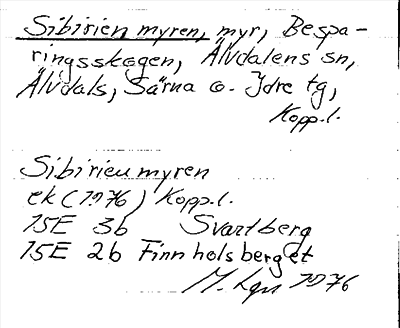 Sibirien myren, myr, Bespa-
ringsskogen, Älvdalens sn,
Älvdals, Särna o. Idre tg,
Kopp.l.
Sibirienmyren
ek (1976) Kopp.l.
15E 3b Svartberg
15E 2b Finnholsberget
M. Lgn 1976